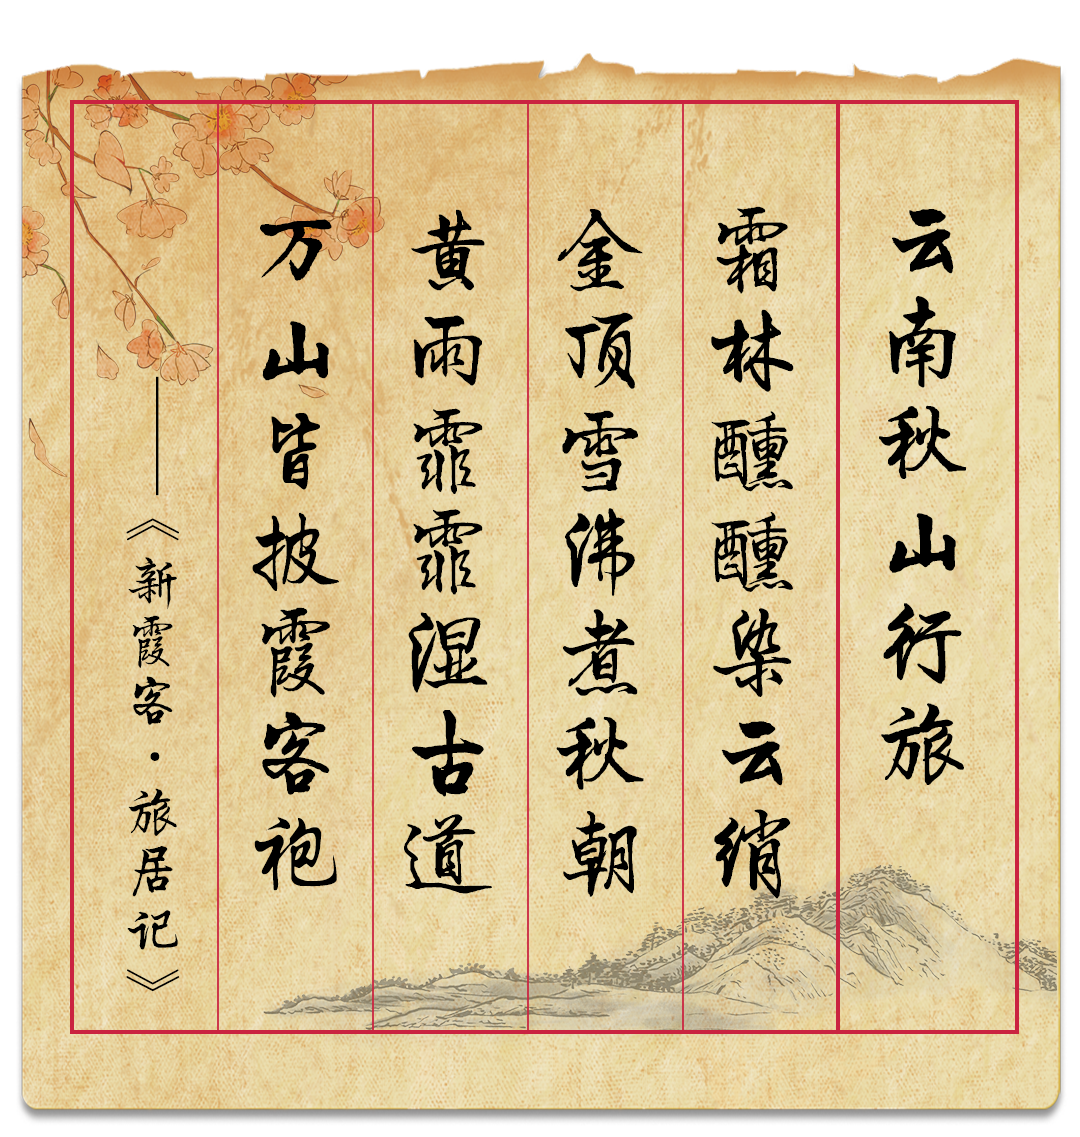 云南秋山行旅
霜林醺醺染云绡
金顶雪沸煮秋朝
黄雨霏霏湿古道
万山皆披霞客袍
——《新霞客·旅居记》